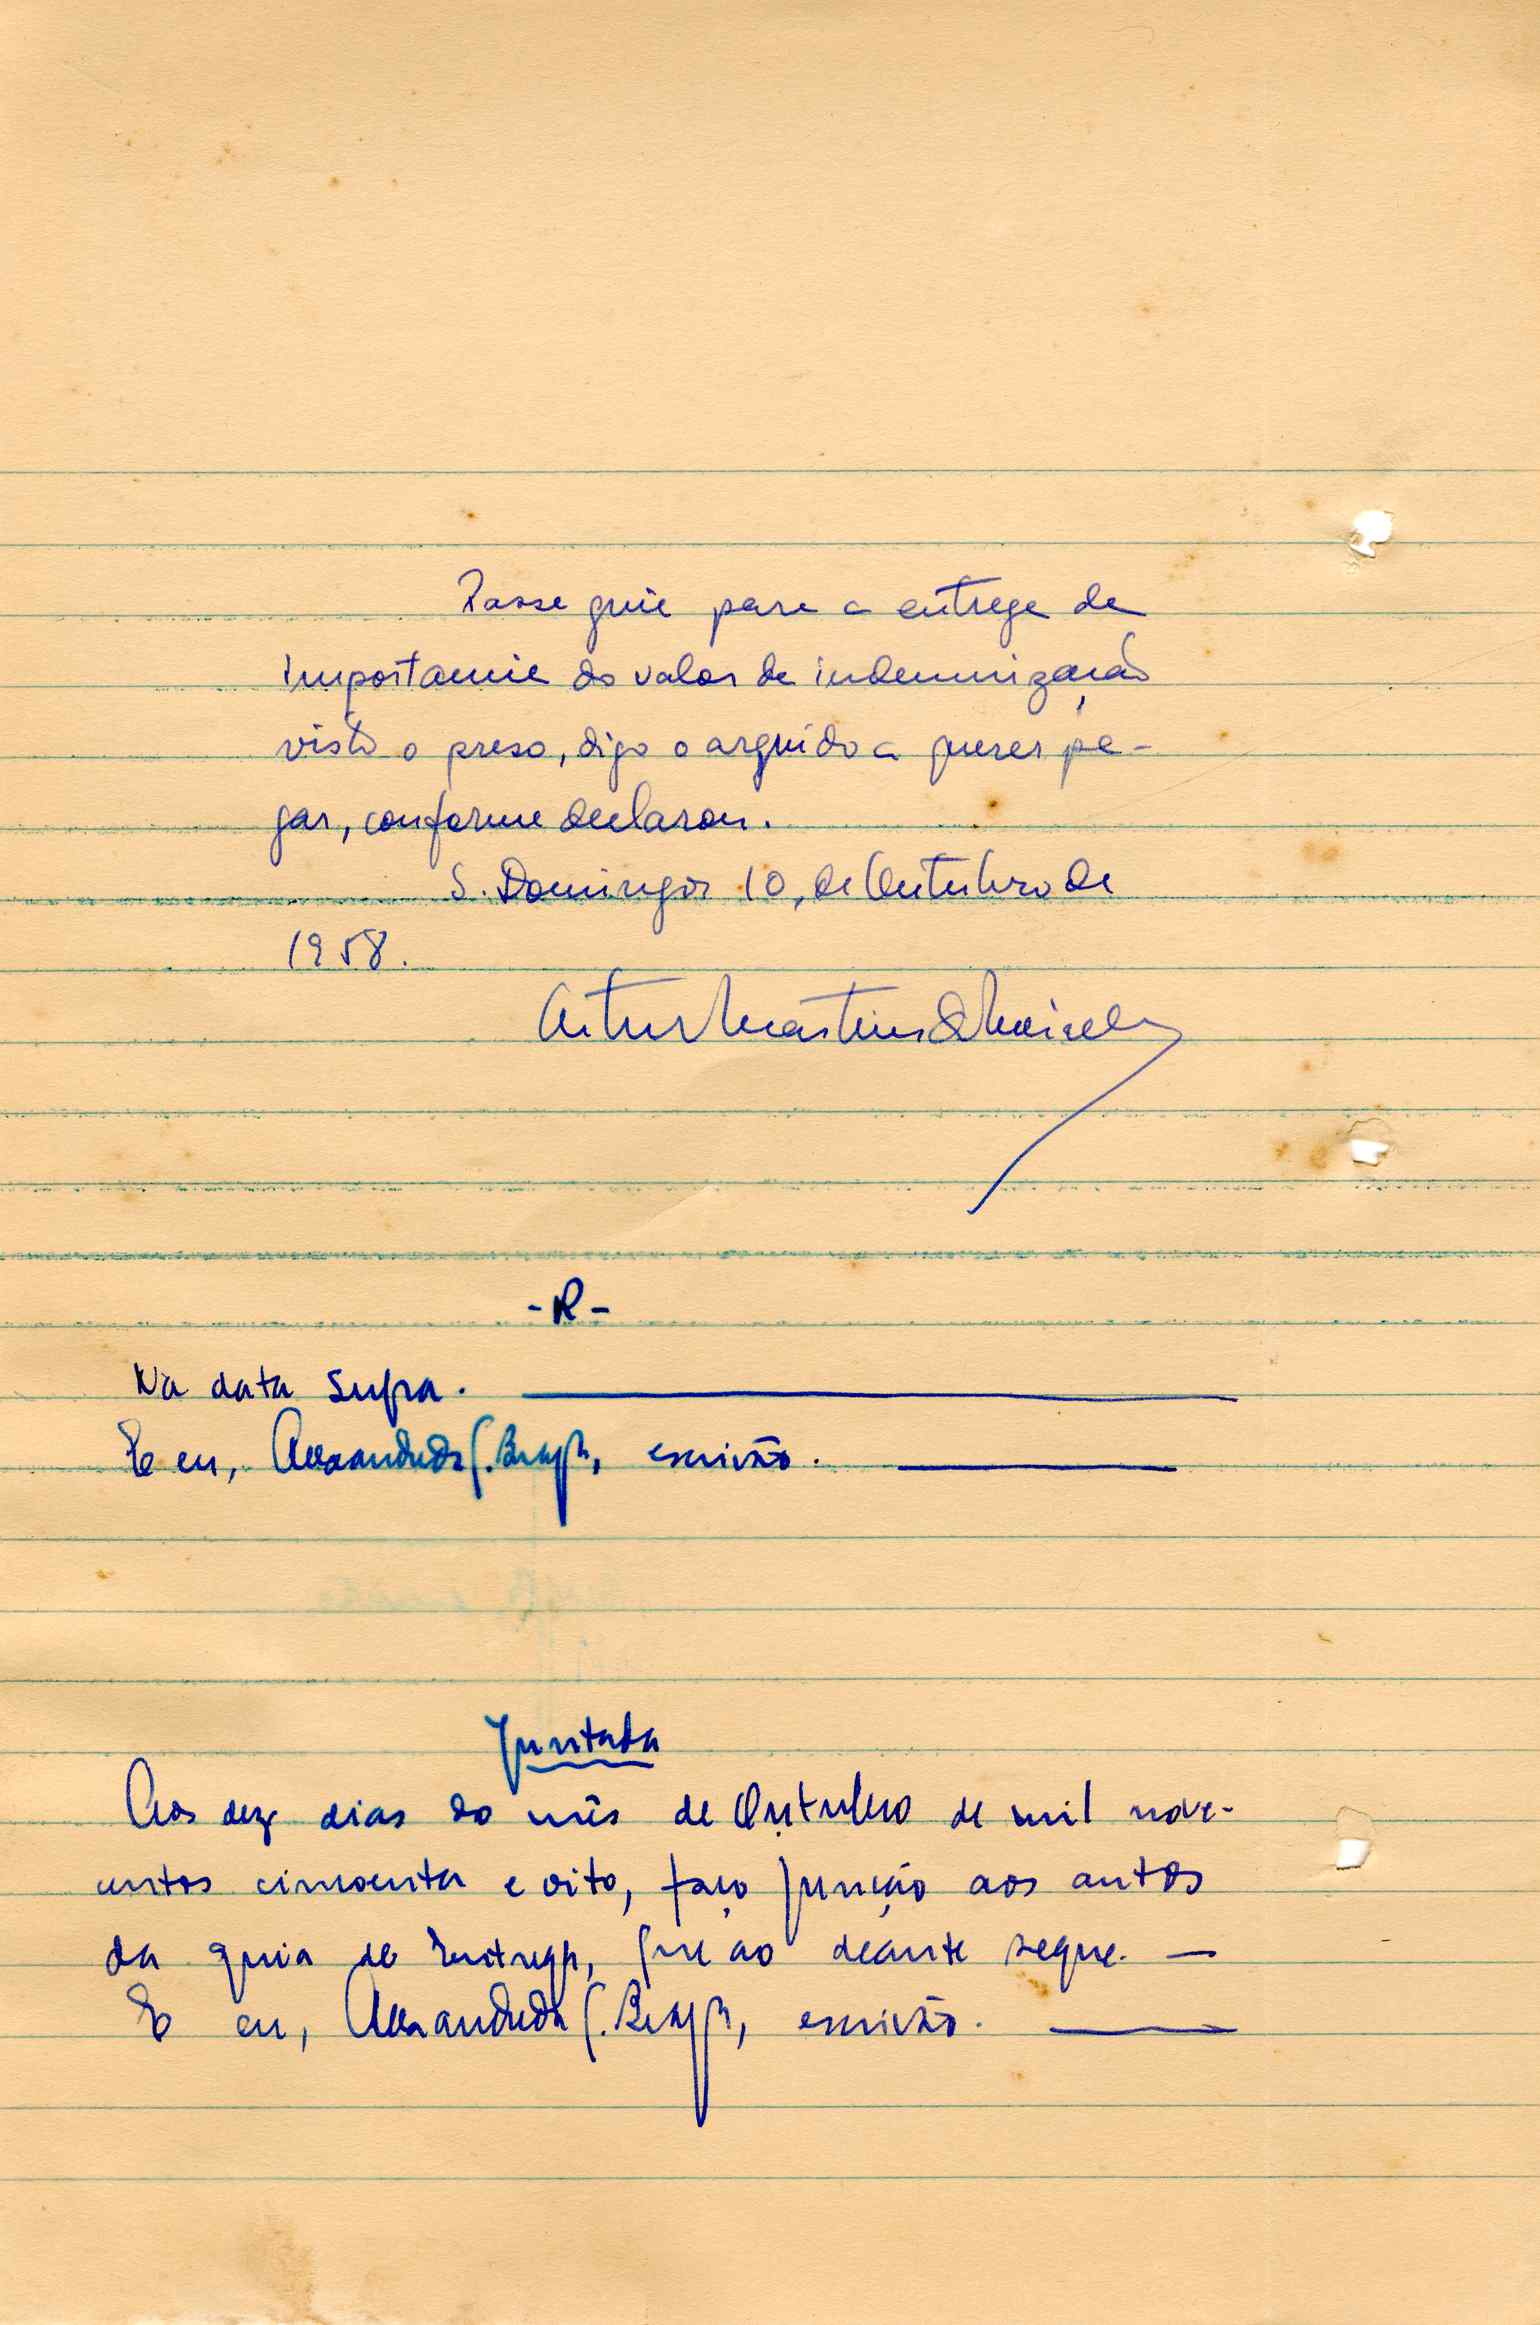 Passe guia para a entrega da
importancia do valor da indemnização
visto o preso, digo o arguido a querer pa-
gar, conforme declarou.
S. Domingos 10, de Outubro de
1958.
Artur Martins de Meireles
- R -
Na data supra.
E eu, escrivão.
Juntada
Aos dez dias do mês de Outubro de mil nove-
centos cincoenta e oito, faço junção aos autos
da guia de entrega, que ao deante segue. —
E eu, escrivão.